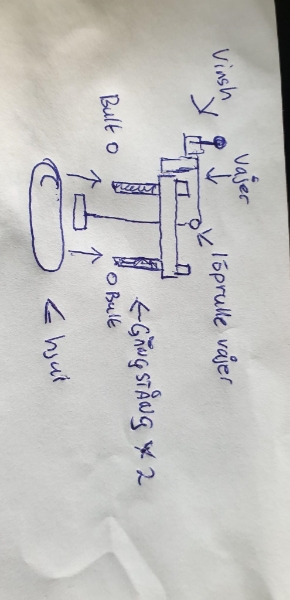 Vinsh
Vajer
Bult
löprulle vajer
Bult
GÄNGSTÅNG x 2
hjul